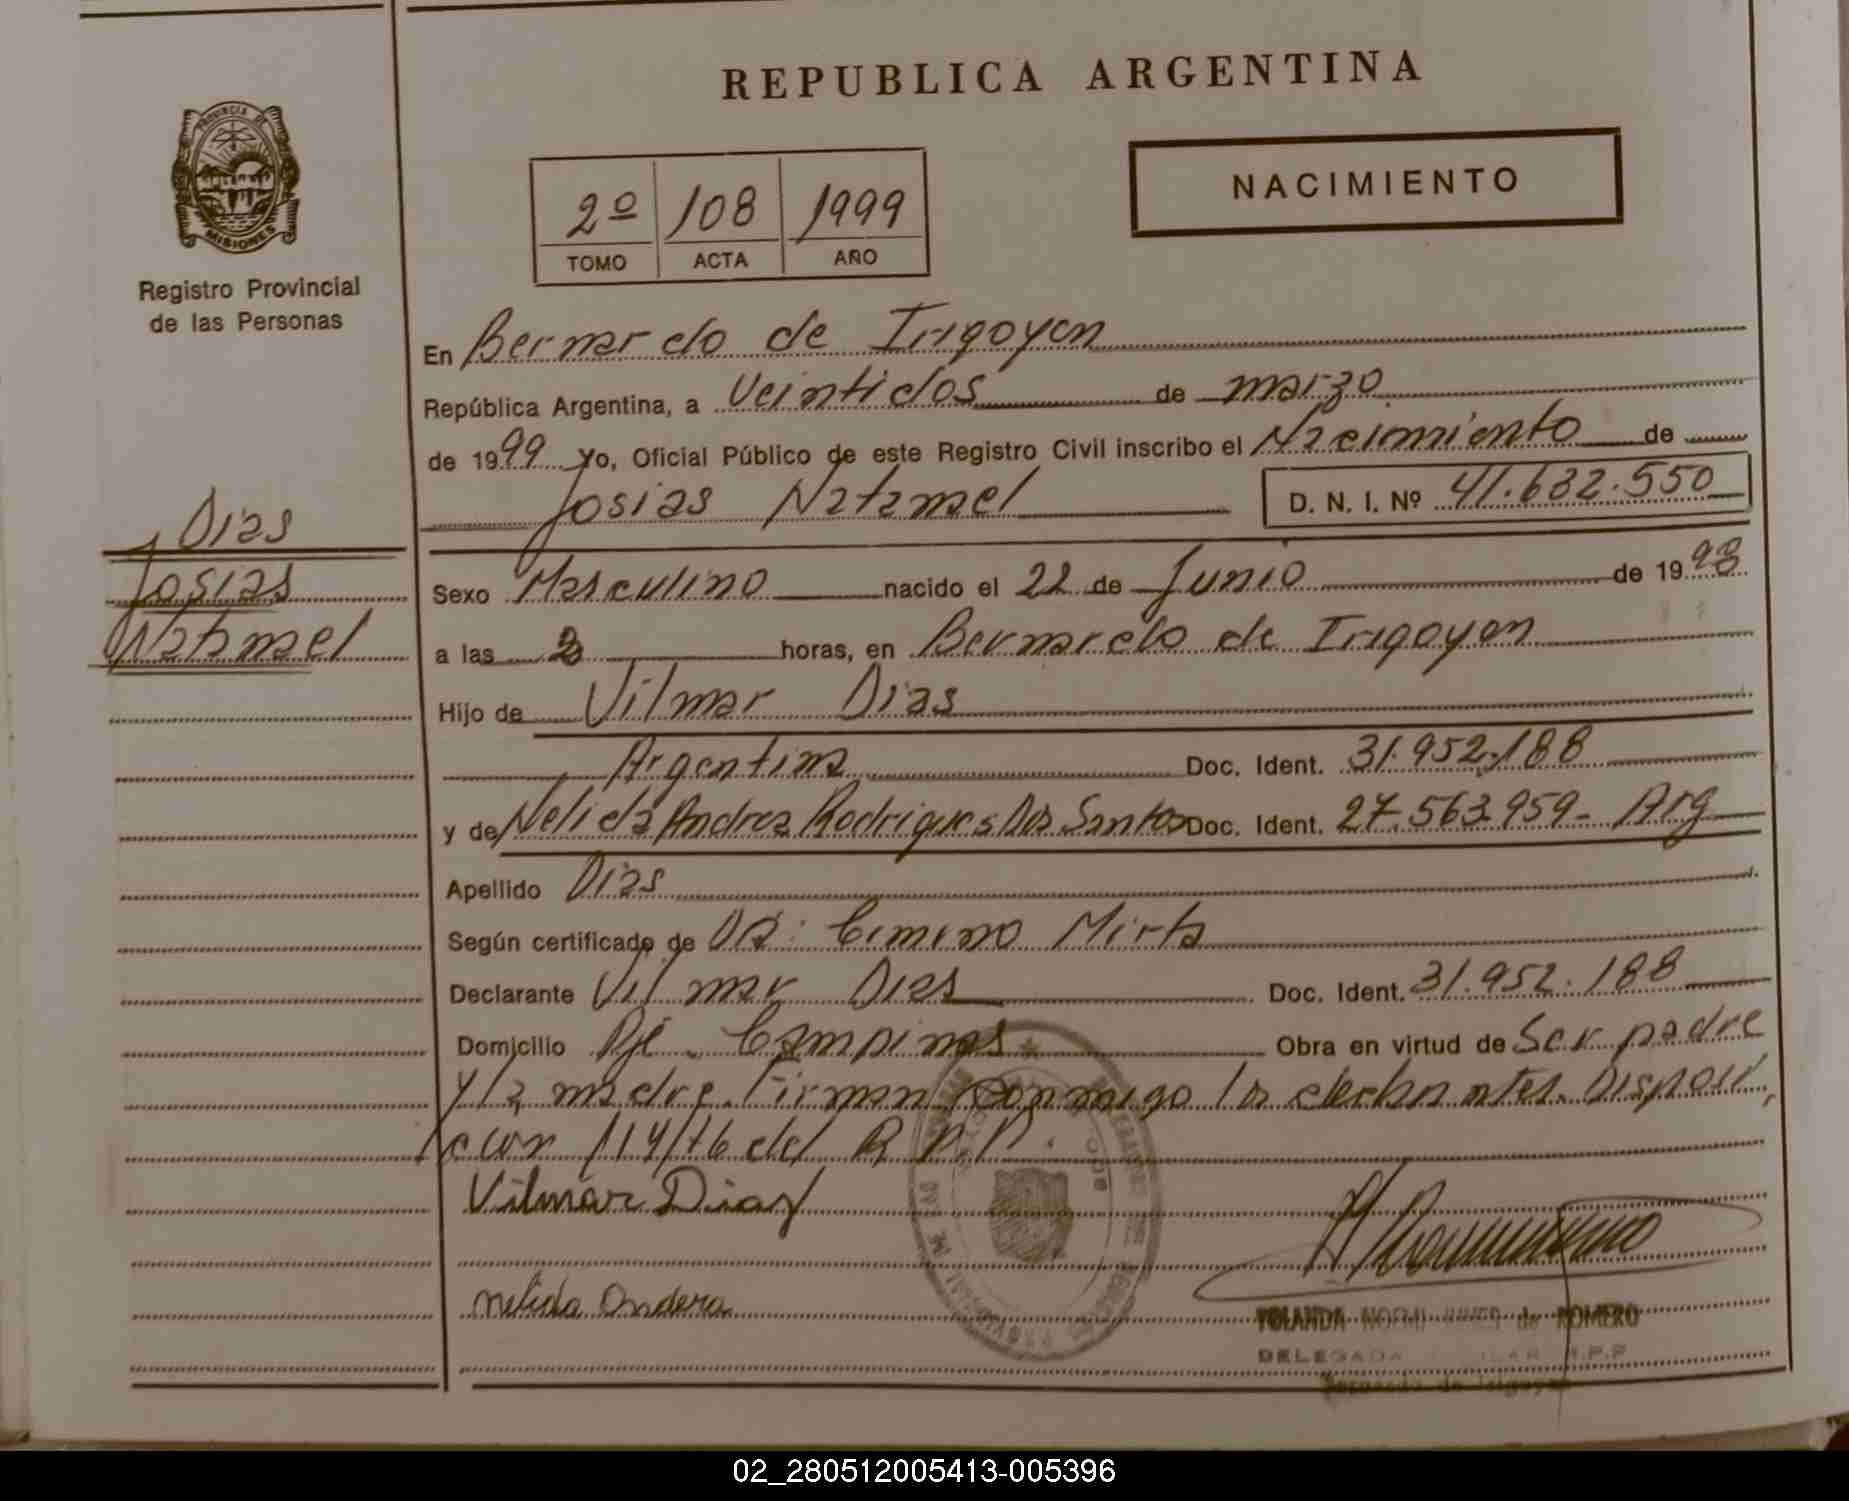 REPUBLICA ARGENTINA
PROVINCIA DE
MISIONES
Registro Provincial
de las Personas
NACIMIENTO
2º 108 1999
TOMO ACTA AÑO
En Bernardo de Irigoyen
República Argentina, a Veintidos de marzo
de 1999 Yo, Oficial Público de este Registro Civil inscribo el Nacimiento de
Josias Natanael D. N. I. Nº 41.632.550
Dias
Josias
Natanael
Sexo Masculino nacido el 22 de Junio de 1998
a las horas, en Bernardo de Irigoyen
Hijo de Vilmar Dias
Argentina Doc. Ident. 31.952.188
y de Nelida Andrea Rodrigues Dos Santos Doc. Ident. 27.563.959- Arg
Apellido Dias
Según certificado de Dra: Cimino Mirta
Declarante Vilmar Dias Doc. Ident. 31.952.188
Domicilio Pje. Campinas Obra en virtud de Ser padre
y la madre. Firman conmigo los declarantes. Disposi,
cion 114/76 del R.P.P.
Vilmar Dias
nelida Andera
YOLANDA NOEMI de ROMERO
DELEGADA R.P.P
Bernardo de Irigoyen
02_280512005413-005396